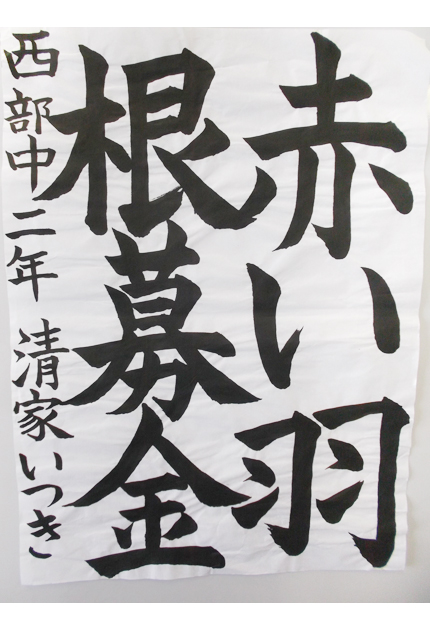 赤い羽
根募金
西部中二年 清家いつき